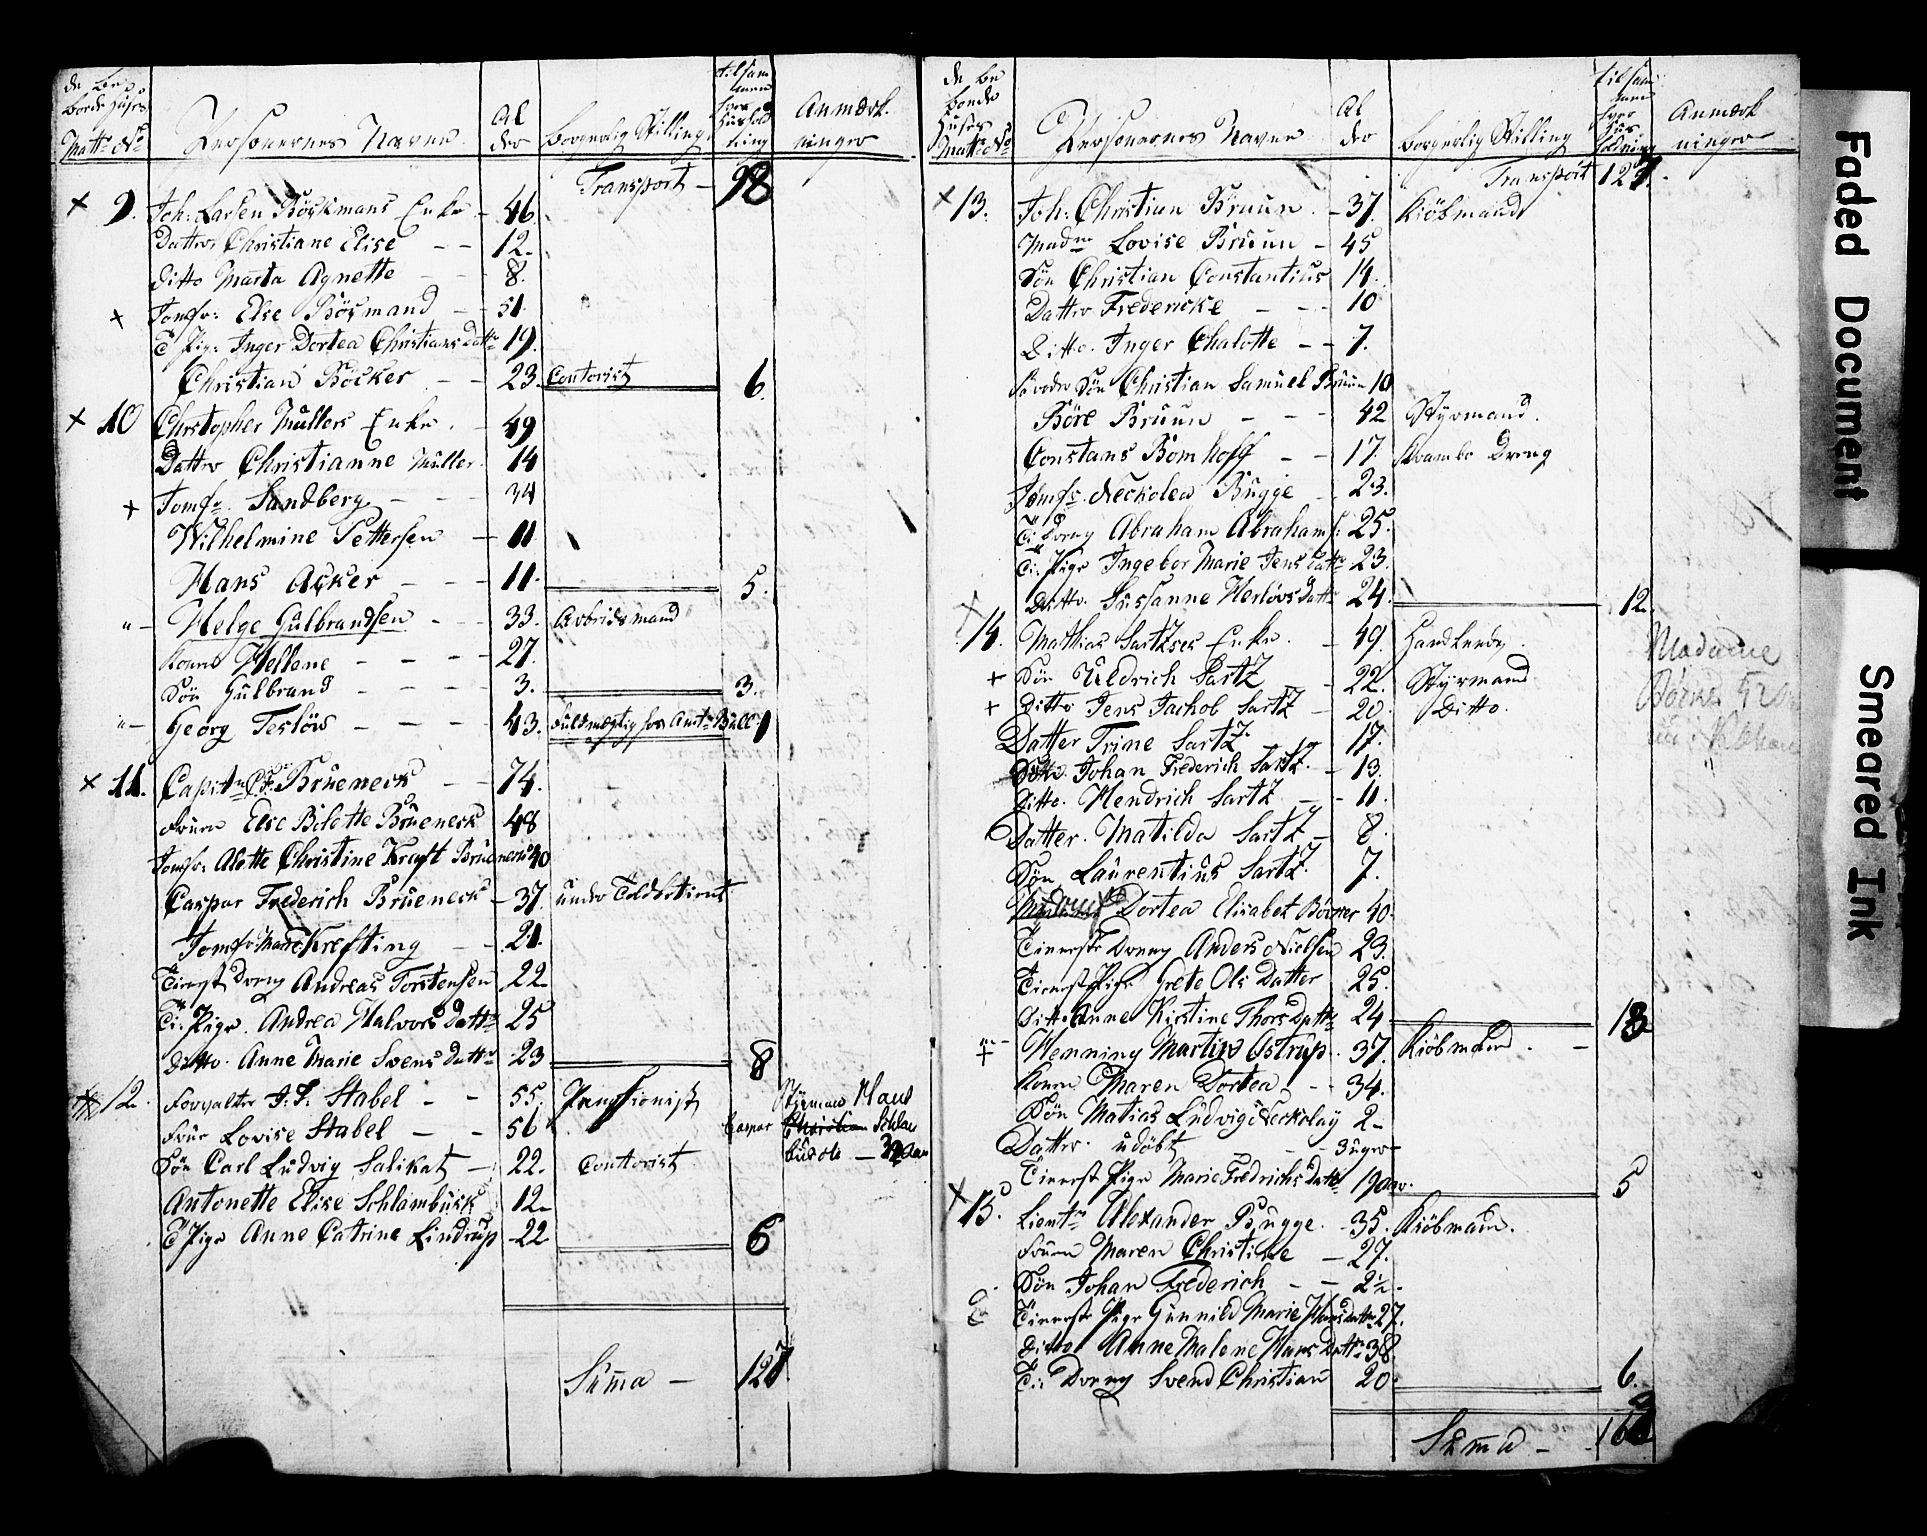 de be
boede Huses
Matr. No
Personernes Navne
Al
der
borgerlig Stilling
tilsam
men
hver
Hushold
ning
Anmærk
ninger
Transport - 98
9. Joh: Larsen Böckmans Enke - 46
Datter Christiane Elise - - 12.
Ditto Marta Agnette - - 8.
Jomfr: Else Bösmand - - 51
T Pig: Inger Dortea Christians Dattr 19.
Christian Böcker - - 23. Contorist 6.
10 Christopher Mullers Enke. - 49
Datter Christianne Müller. 14
Jomfr. Sandberg - - 34
Wilhelmine Pettersen - 11
Hans Acker - - - 11. 5.
"- Helge Gulbrandsen - - 33. Arbeidsmand
Kone Hellene - - - - 27.
Sön Gulbrand - - - - 3. 3.
"- Georg Teslöw - - - 43. Fuldmægtig for Amtm Bull 1
11. Capitn C: F: Brueneck - - 74.
Fruen Else Bilette Brueneck 48
Jomfr: Alette Christine Kraft Bruenecks 40
Caspar Frederich Brueneck - 37. under Toldbetient
Jomfr Marie Krefting - - 21.
Tienst Dreng Andreas Torstensen 22
Ti: Pige. Andrea Halvors Dattr 25
Ditto. Anne Marie Svens Dattr 23 8
12. Forvalter J. F. Stabel - - 55. Pensionist Styrmand Klaus
Frue Lovise Stabel - - 56 Caspar Christian Schlam
Sön Carl Ludvig Salikat - 22. Contorist. busch - 32 Aar
Antonette Elise Schlambusk 12
T Pige Anne Catrine Lindrup 22 6
Suma - 127
de be
boende
Huses
Matr. No
Personernes Navne
Al
der
borgerlig Stilling
tilsam
men
hver
Hus
holdning
Anmærk
ninger
Transport 127.
13. Joh: Christian Bruun. - 37. Kiöbmand
Madm Lovise Bruun - 45
Sön Christian Constantius 14.
Datter Fredericke - - - 10
Ditto. Inger Chalotte - - 7.
Broder Sön Christian Samuel Bruun 10
Böre Bruun - - - 42 Styrmand.
Constans Bomhoff - - 17. Krambo Dreng
Jomfr. Neckolea Bugge - 23.
Ti: Dreng Abraham Abrahams: 25.
Ti: Pige Ingebor Marie Jens Dattr 23.
Ditto. Sussanne Herlövs Dattr 24. 12.
14. Mathias Sartzes Enke. - 49. Handlende
+ Sön Uldrich Sartz - 22. Styrmand
+ Ditto Jens Jachob Sartz - 20. Ditto.
Madame
Datter Trine Sartz. 17.
Sön. Johan Frederich Sartz. - 13.
Ditto. Hendrich Sartz. - 11.
Datter. Matilda Sartz - 8.
Sön Laurentius Sartz. 7.
Dortea Elisabet Börner 40.
Tieneste Dreng Anders Nielsen 23.
Tienest Pige Grete Ols Datter 25.
Ditto Anne Kirstine Thors Dattr 24 13
Henning Martin Ostrup. 37. Kiöbmand. -
Kone Maren Dortea - - 34.
Sön Matias Ludvig Neckolay 2 -
Datter. udöbt - - 3 uger
Tienest Pige Marie Fredrichs Dattr 19 aar. 5
15. Lieutn Alexander Bugge. - 35. Kiöbmand.
Fruen Maren Christine - 27.
Sön Johan Frederich - - 2½ -
Tieneste Pige Gunnild Marie Hansdatter 27.
Ditto Anne Malene Hans Dattr 38.
Ti: Dreng Svend Christian 20. 6.
Suma -
Faded Document
Smeared Ink